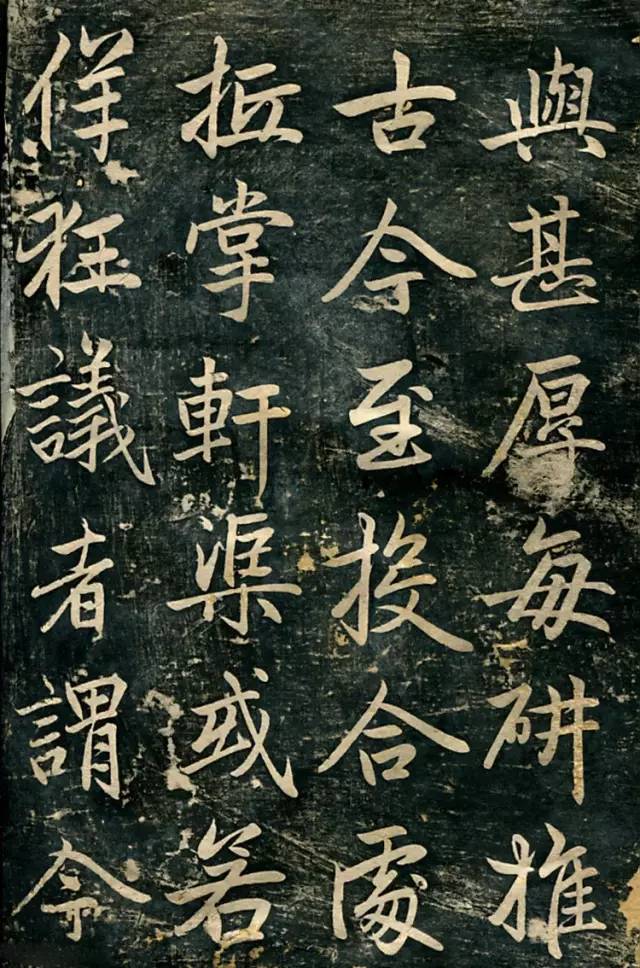 與甚厚每研推
古今至投合處
抵掌軒渠或若
佯狂議者謂令